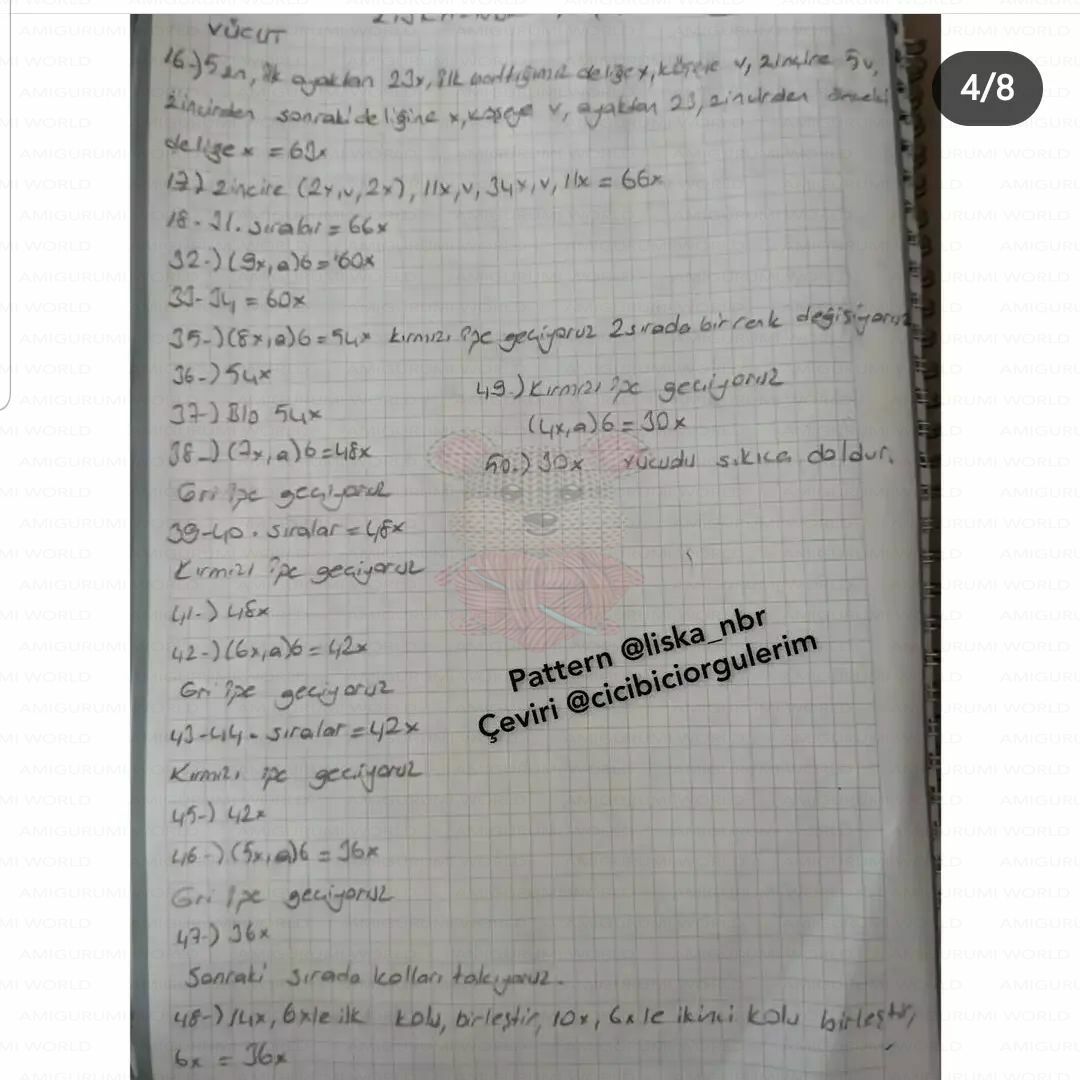 VÜCUT
16-) 5zn, ilk ayaktan 23x, ilk battığımız deliğe x, köşeye v, zincire 5v,
zincirden sonraki deliğine x, köşeye v, ayaktan 23, zincirden önceki
deliğe x = 63x
17-) zincire (2x, v, 2x), 11x, v, 34x, v, 11x = 66x
18-31. sıralar = 66x
32-) (9x, a)6 = 60x
33-34 = 60x
35-) (8x, a)6 = 54x kırmızı ipe geçiyoruz 2 sırada bir renk değişiyoruz
36-) 54x
37-) Blo 54x
38-) (7x, a)6 = 48x
Gri ipe geçiyoruz
39-40. sıralar = 48x
Kırmızı ipe geçiyoruz
41-) 48x
42-) (6x, a)6 = 42x
Gri ipe geçiyoruz
43-44. sıralar = 42x
Kırmızı ipe geçiyoruz
45-) 42x
46-) (5x, a)6 = 36x
Gri ipe geçiyoruz
47-) 36x
Sonraki sırada kolları takıyoruz.
48-) 14x, 6x le ilk kolu birleştir, 10x, 6x le ikinci kolu birleştir,
6x = 36x
49-) Kırmızı ipe geçiyoruz
(4x, a)6 = 30x
50-) 30x vücudu sıkıca doldur.
Pattern @liska_nbr
Çeviri @cicibiciorgulerim
4/8
AMIGURUMI WORLD